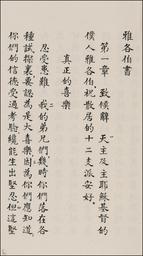 雅各伯書
第一章 致候辭 天主及主耶穌基督的
僕人雅各伯祝散居的十二支派安好。
真正的喜樂
忍受患難 我的弟兄們幾時你們落在各
種試探裏要認為是大喜樂因為你們應知道
你們的信德受過考驗纔能生出堅忍但這堅